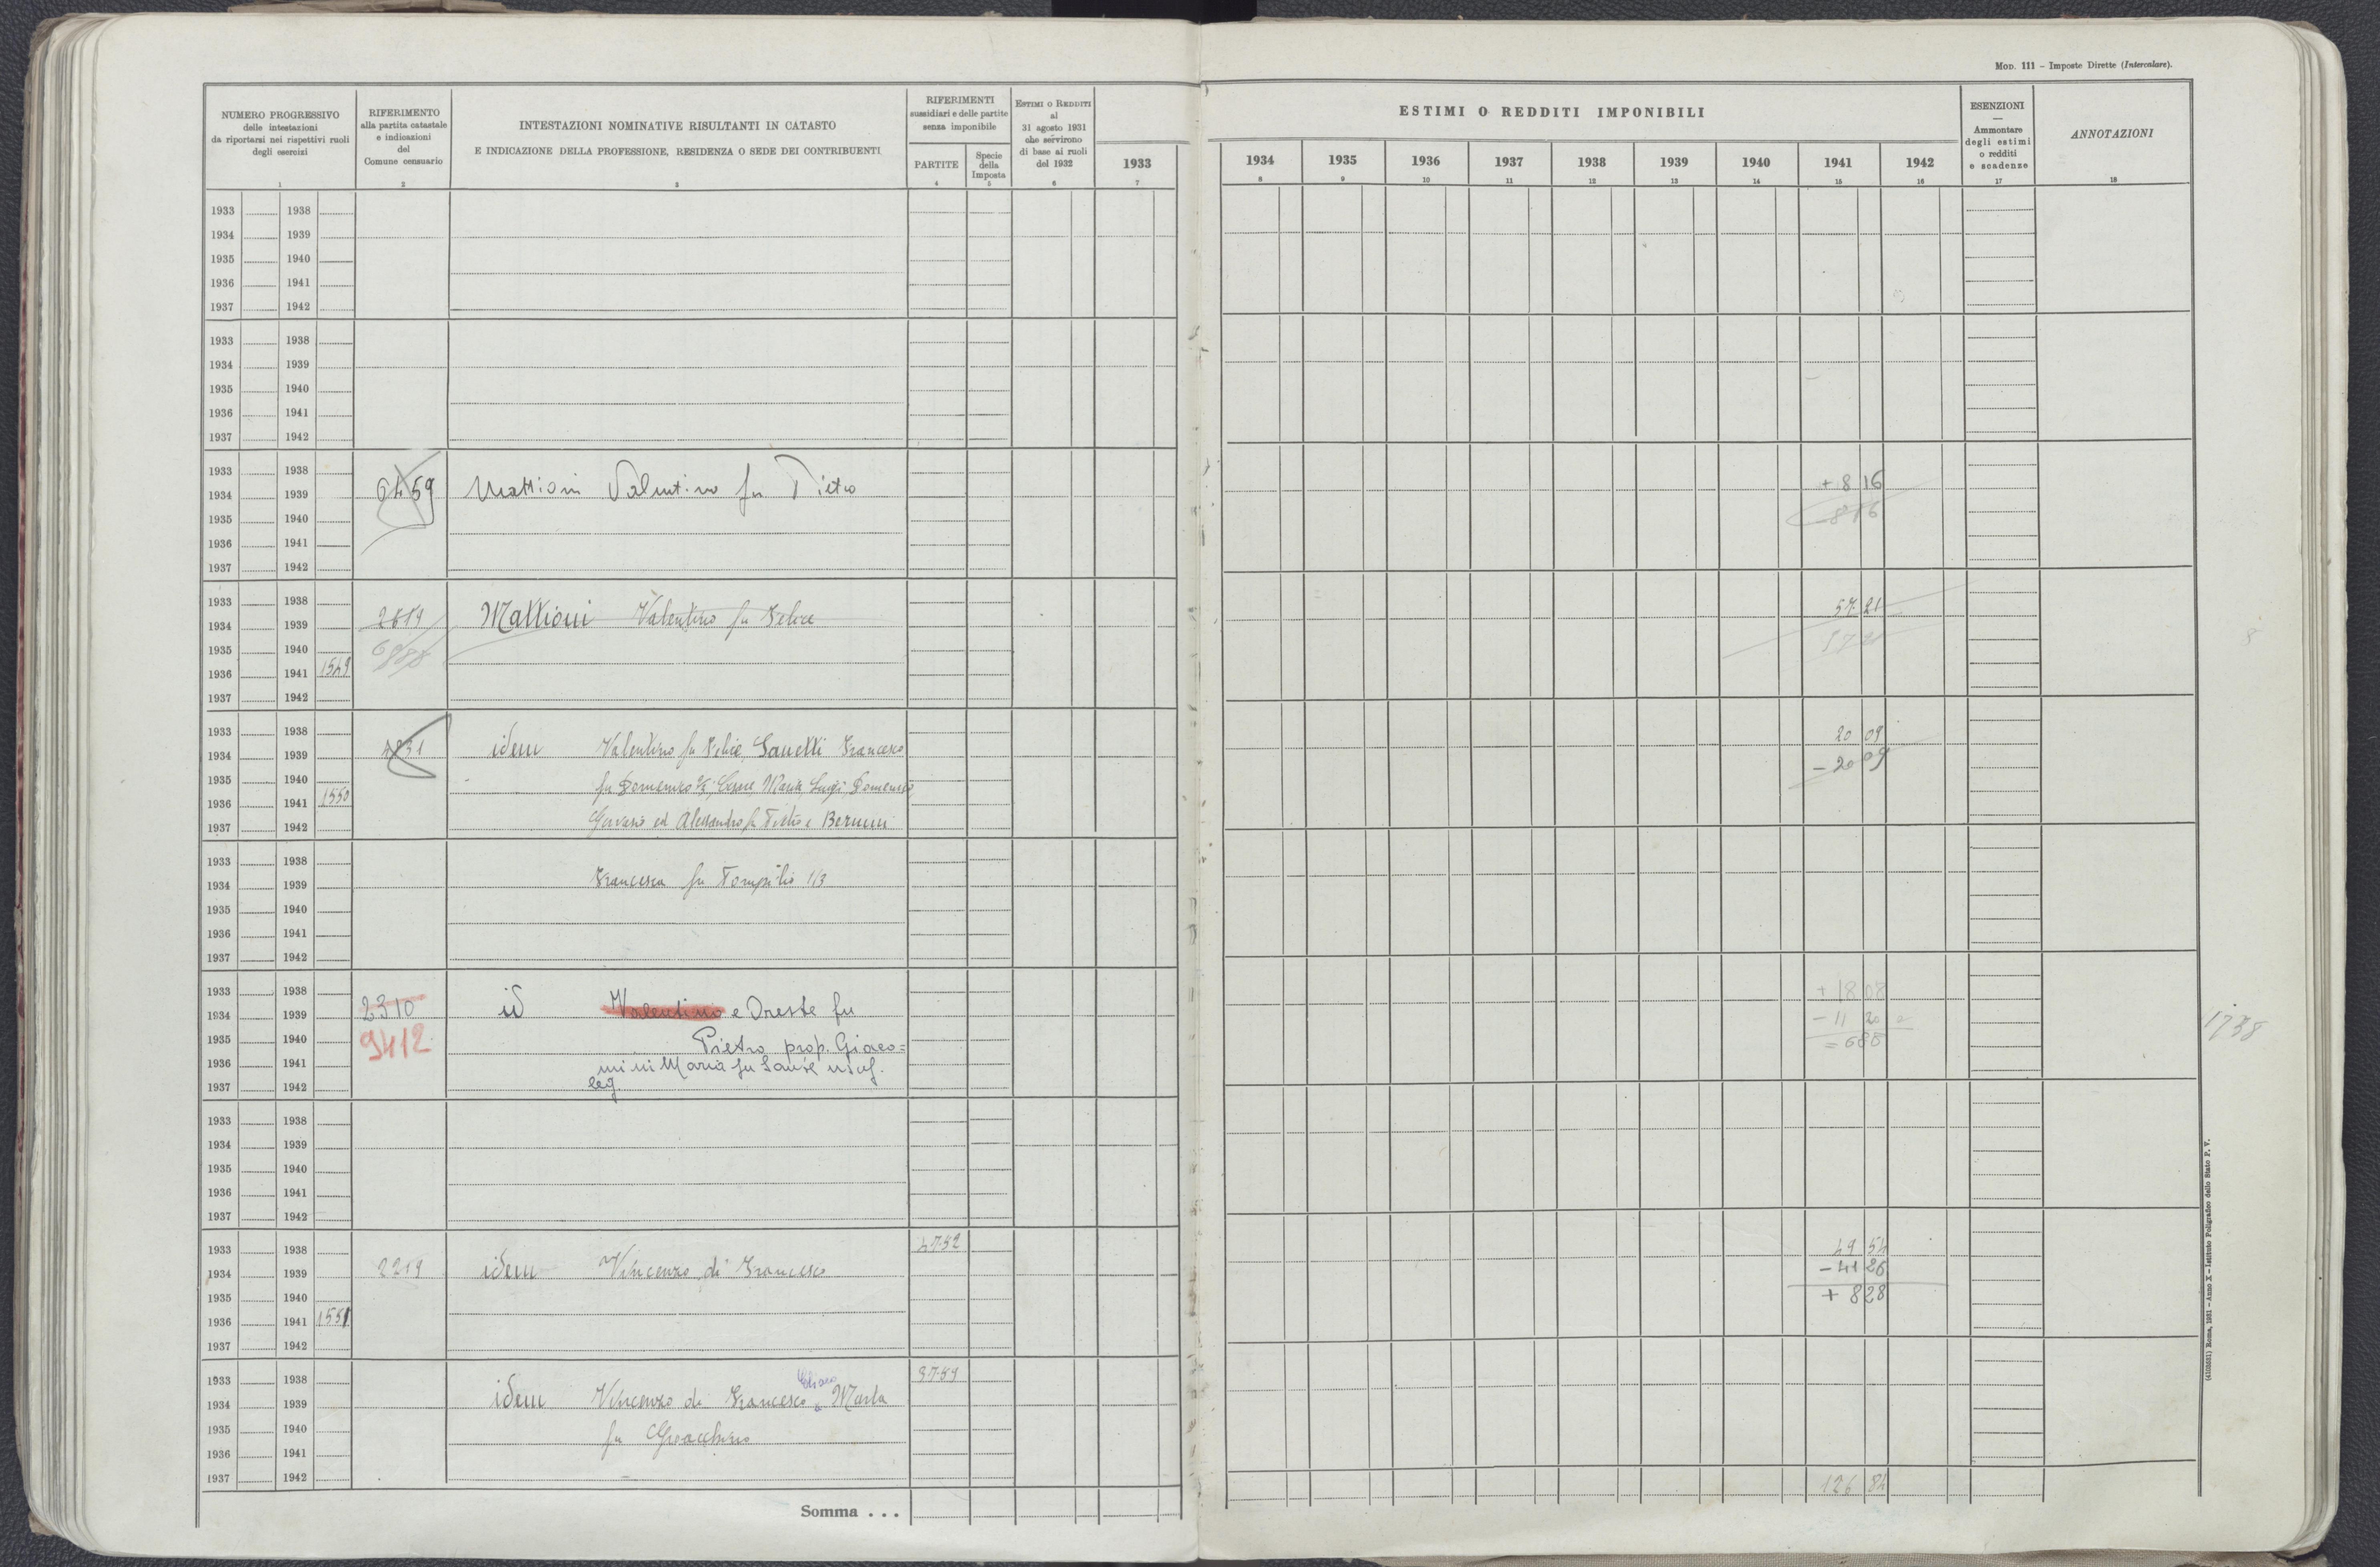 MOD. 111 – Imposte Dirette (Intercalare).
NUMERO PROGRESSIVO
delle intestazioni
da riportarsi nei rispettivi ruoli
degli esercizi
1
RIFERIMENTO
alla partita catastale
e indicazioni
del
Comune censuario
2
INTESTAZIONI NOMINATIVE RISULTANTI IN CATASTO
E INDICAZIONE DELLA PROFESSIONE, RESIDENZA O SEDE DEI CONTRIBUENTI
3
RIFERIMENTI
sussidiari e delle partite
senza imponibile
PARTITE
4
Specie
della
Imposta
5
ESTIMI O REDDITI
al
31 agosto 1931
che servirono
di base ai ruoli
del 1932
6
1933
7
ESTIMI O REDDITI IMPONIBILI
1934 1935 1936 1937 1938 1939 1940 1941 1942
8 9 10 11 12 13 14 15 16
ESENZIONI
—
Ammontare
degli estimi
o redditi
e scadenze
17
ANNOTAZIONI
18
1933 1938
1934 1939
1935 1940
1936 1941
1937 1942
1933 1938
1934 1939
1935 1940
1936 1941
1937 1942
1933 1938
1934 1939 6459 Mattioni Valentino fu Pietro + 8 16
1935 1940 - 816
1936 1941
1937 1942
1933 1938
1934 1939 2619 Mattioni Valentino fu Felice 57 21
1935 1940
1936 1941 1549
1937 1942
1933 1938
1934 1939 idem Valentino fu Felice, Sanetti Francesco 20 09
1935 1940 fu Domenico 2/3, Cesare, Maria, Luigi, Domenico - 20 09
1936 1941 1550
1937 1942 Gervasio ed Alessandro fu Pietro e Bernini
1933 1938
1934 1939 Francesca fu Pompilio 1/3
1935 1940
1936 1941
1937 1942
1933 1938
1934 1939 2310 id Valentino e Oreste fu + 18 08
1935 1940 9412 Pietro prop. Giaco= - 11 20
1936 1941 mini Maria fu Sante usuf. = 688
1937 1942 leg.
1738
1933 1938
1934 1939
1935 1940
1936 1941
1937 1942
1933 1938 4752
1934 1939 2219 idem Vincenzo di Francesco 49 54
1935 1940 - 41 26
1936 1941 1551 + 8 28
1937 1942
1933 1938 3759
1934 1939 idem Vincenzo di Francesco e Marta
1935 1940 fu Gioacchino
1936 1941
1937 1942
Somma . . . 126 84
(4103581) Roma, 1931 – Anno X – Istituto Poligrafico dello Stato P. V.